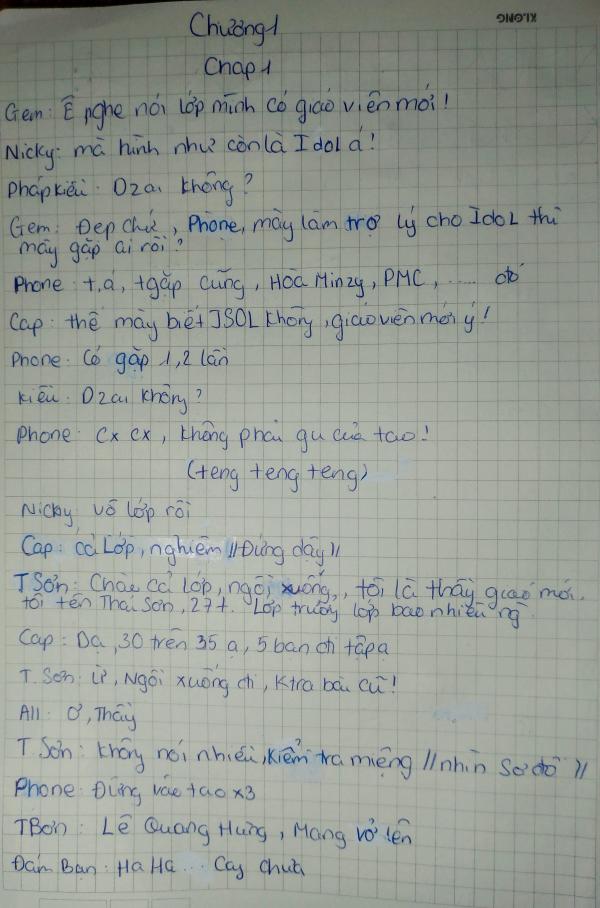 KLONG
Chương 1
Chap 1
Gem: Ê nghe nói lớp mình có giáo viên mới!
Nicky: mà hình như còn là Idol á!
Pháp Kiều: Dzai không?
Gem: Đẹp chứ, Phone, mày làm trợ lý cho IdoL thì
mày gặp ai rồi?
Phone: t, á, t gặp cũng, Hòa Minzy, PMC, ..... đồ
Cap: thế mày biết JSOL không, giáo viên mới ý!
Phone: Có gặp 1,2 lần
Kiều: Dzai không?
Phone: Cx cx, không phải gu của tao!
(teng teng teng)
Nicky, vô lớp rồi
Cap: cả Lớp, nghiêm //Đứng dậy//
T Sơn: Chào cả lớp, ngồi xuống, tôi là thầy giáo mới.
tôi tên Thái Sơn, 27t. Lớp trưởng lớp bao nhiêu ng
Cap: Dạ, 30 trên 35 ạ, 5 bạn đi tập ạ
T. Sơn: Ừ, Ngồi xuống đi, Ktra bài cũ!
All: Ơ, Thầy
T Sơn: không nói nhiều, kiểm tra miệng //nhìn Sơ đồ//
Phone: Đừng vào tao x3
T Sơn: Lê Quang Hưng, Mang vở lên
Đám Bạn: Ha Ha ... Cay chưa